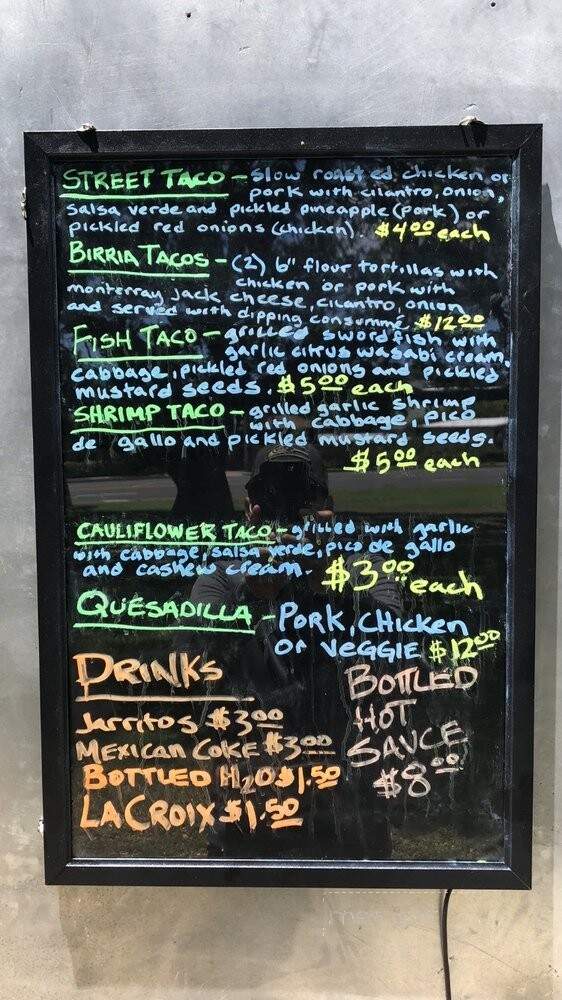 STREET TACO - slow roasted chicken or
pork with cilantro, onion,
salsa verde and pickled pineapple (pork) or
pickled red onions (chicken). $4.00 each
BIRRIA TACOS - (2) 6" flour tortillas with
chicken or pork with
monterray jack cheese, cilantro, onion
and served with dipping consummé. $12.00
FISH TACO - grilled swordfish with
garlic citrus wasabi cream,
cabbage, pickled red onions and pickled
mustard seeds. $5.00 each
SHRIMP TACO - grilled garlic shrimp
with cabbage, pico
de gallo and pickled mustard seeds.
$5.00 each
CAULIFLOWER TACO - grilled with garlic
with cabbage, salsa verde, pico de gallo
and cashew cream. $3.00 each
QUESADILLA - PORK, CHICKEN
or VEGGIE $12.00
DRINKS
Jarritos $3.00
MEXICAN COKE $3.00
BOTTLED H2O $1.50
LACROIX $1.50
BOTTLED
HOT
SAUCE
$8.00